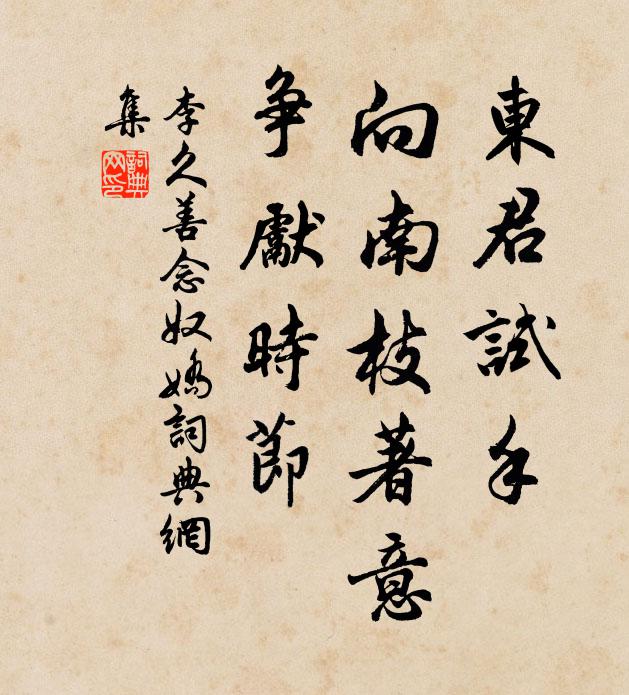 東君試手
向南枝著意
争獻時節
李久善念奴嬌詞典網
集
詞典
网印